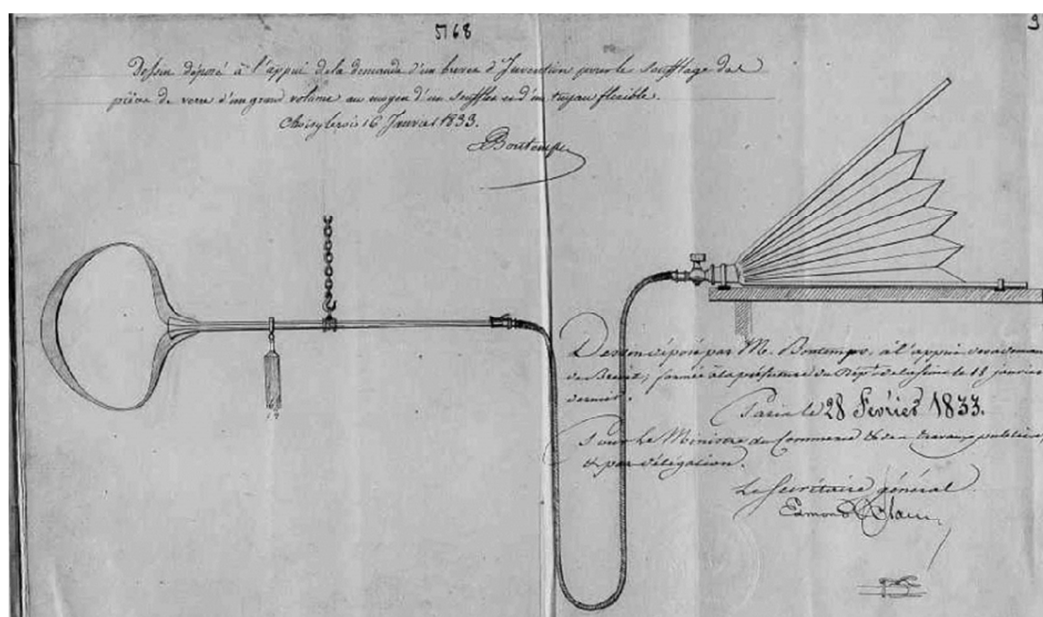 5168
9
Dessin déposé à l'appui de la demande d'un brevet d'Invention pour le soufflage des
pièces de verre d'un grand volume au moyen d'un soufflet et d'un tuyau flexible.
Choisy le roi 16 Janvier 1833.
Bontemps
Dessin déposé par M. Bontemps, à l'appui de sa demande
de Brevet, formée à la préfecture du Dépt. de la Seine le 18 janvier
dernier.
Paris le 28 Février 1833.
Pour le Ministre du Commerce & des travaux publics,
& par délégation.
Le Secrétaire général
Edmond Blanc